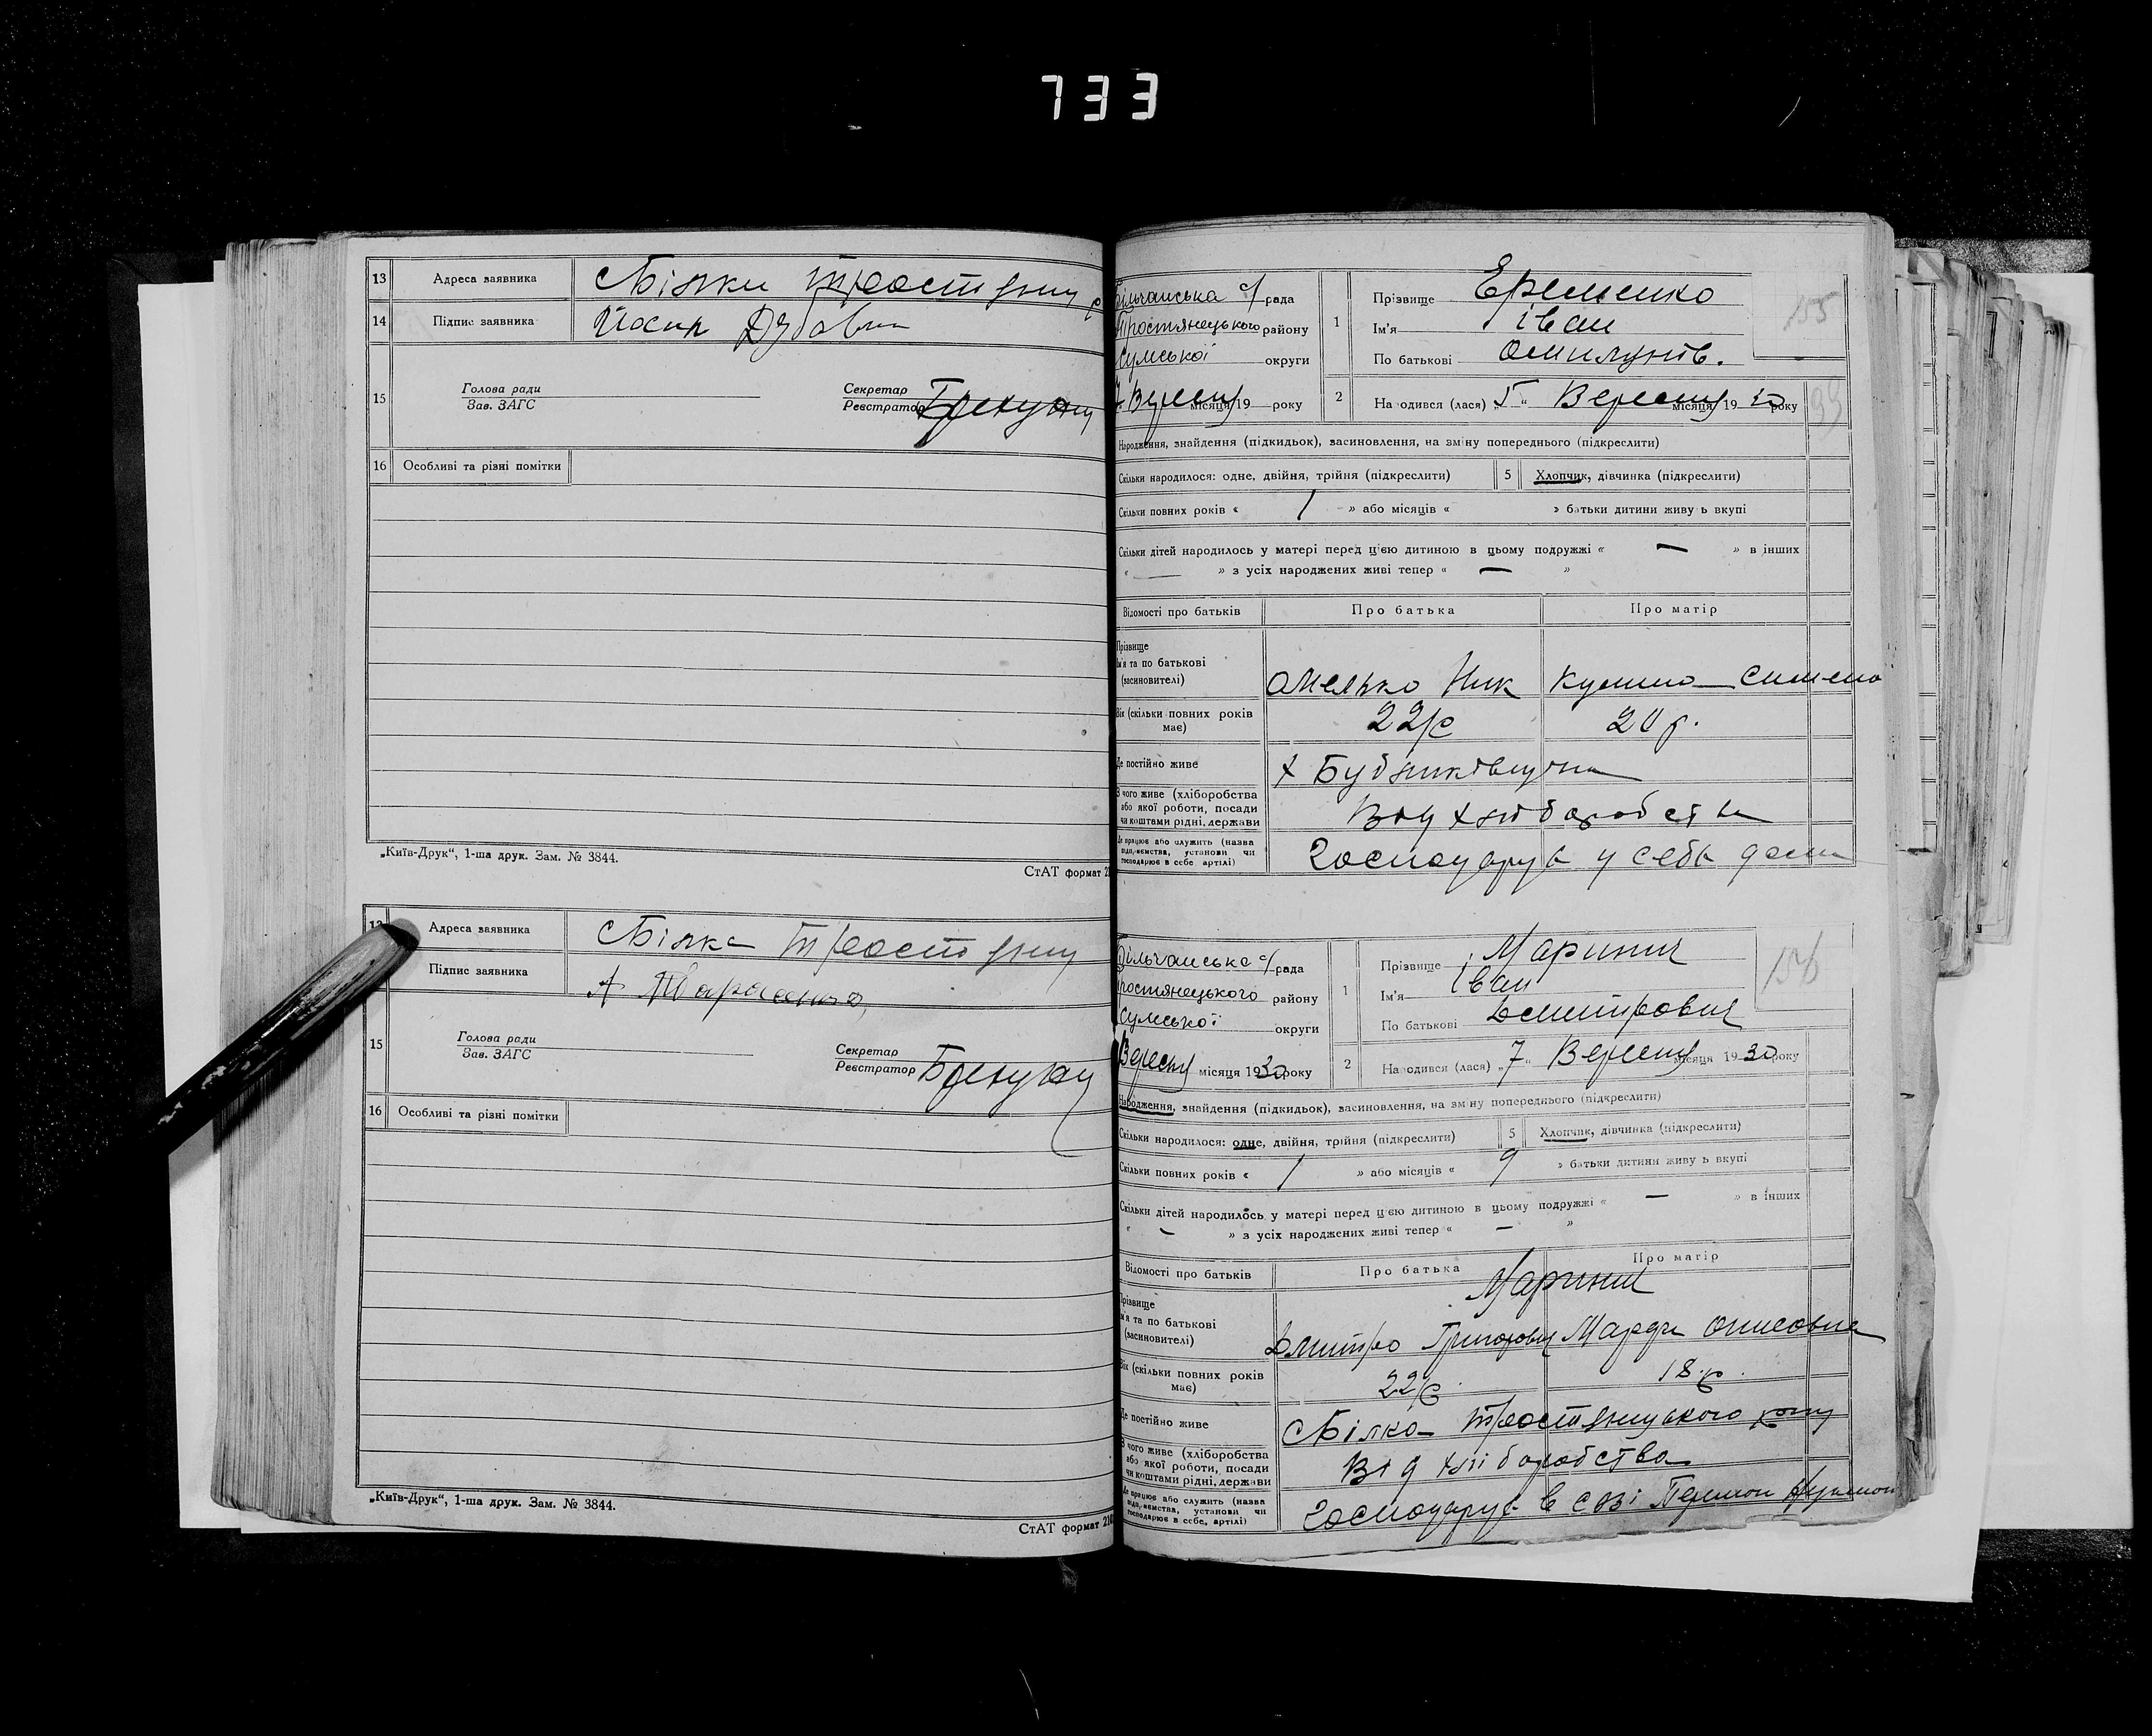 733
13 Адреса заявника с Білки Тростянц
14 Підпис заявника Йосип Дубовик
15 Голова ради Секретар
Зав. ЗАГС Реєстратор
16 Особливі та різні помітки
„Київ-Друк“, 1-ша друк. Зам. № 3844.
СтАТ формат
Адреса заявника с Білка Тростянц
Підпис заявника
15 Голова ради Секретар
Зав. ЗАГС Реєстратор
16 Особливі та різні помітки
„Київ-Друк“, 1-ша друк. Зам. № 3844.
СтАТ формат
більчанська с/рада
Тростянецького району
Сумської округи
7 Вересня місяця 19 року
1 Прізвище Еременко
Ім'я Іван
По батькові
155
2 На одився (лася) „5“ Вересня місяця 19 30 року
99
Народження, знайдення (підкидьок), засиновлення, на зміну попереднього (підкреслити)
Скільки народилося: одне, двійня, трійня (підкреслити) 5 Хлопчик, дівчинка (підкреслити)
Скільки повних років « 1 » або місяців « » батьки дитини живу ь вкупі
Скільки дітей народилось у матері перед цією дитиною в цьому подружжі « — » в інших
« — » з усіх народжених живі тепер « — »
Відомості про батьків Про батька Про матір
Прізвище
ім'я та по батькові
(засиновителі) Омелько Ник
Вік (скільки повних років
має) 22 р 20 р.
Де постійно живе х
З чого живе (хліборобства
або якої роботи, посади
чи коштами рідні, держави Від хліборобства
Де працює або служить (назва
підпр.ємства, установи чи
господарює в себе артілі) Господарує у себе дома
Більчанська с/рада
Тростянецького району
Сумської округи
Вересня місяця 1930 року
1 Прізвище Маринич
Ім'я Іван
По батькові Дмитрович
156
2 Народився (лася) „7“ Вересня місяця 1930 року
Народження, знайдення (підкидьок), засиновлення, на зміну попереднього (підкреслити)
Скільки народилося: одне, двійня, трійня (підкреслити) 5 Хлопчик, дівчинка (підкреслити)
Скільки повних років « 1 » або місяців « 9 » батьки дитини живу ь вкупі
Скільки дітей народилось у матері перед цією дитиною в цьому подружжі « — » в інших
« — » з усіх народжених живі тепер « — »
Відомості про батьків Про батька Про матір
Маринич
Прізвище
ім'я та по батькові
(засиновителі) Дмитро Григорович Марфа
Вік (скільки повних років
має) 22 р. 18 р.
Де постійно живе с Білка Тростянецького рону
З чого живе (хліборобства
або якої роботи, посади
чи коштами рідні, держави Від хліборобства
Де працює або служить (назва
підпр.ємства, установи чи
господарює в себе, артілі) Господарує в созі